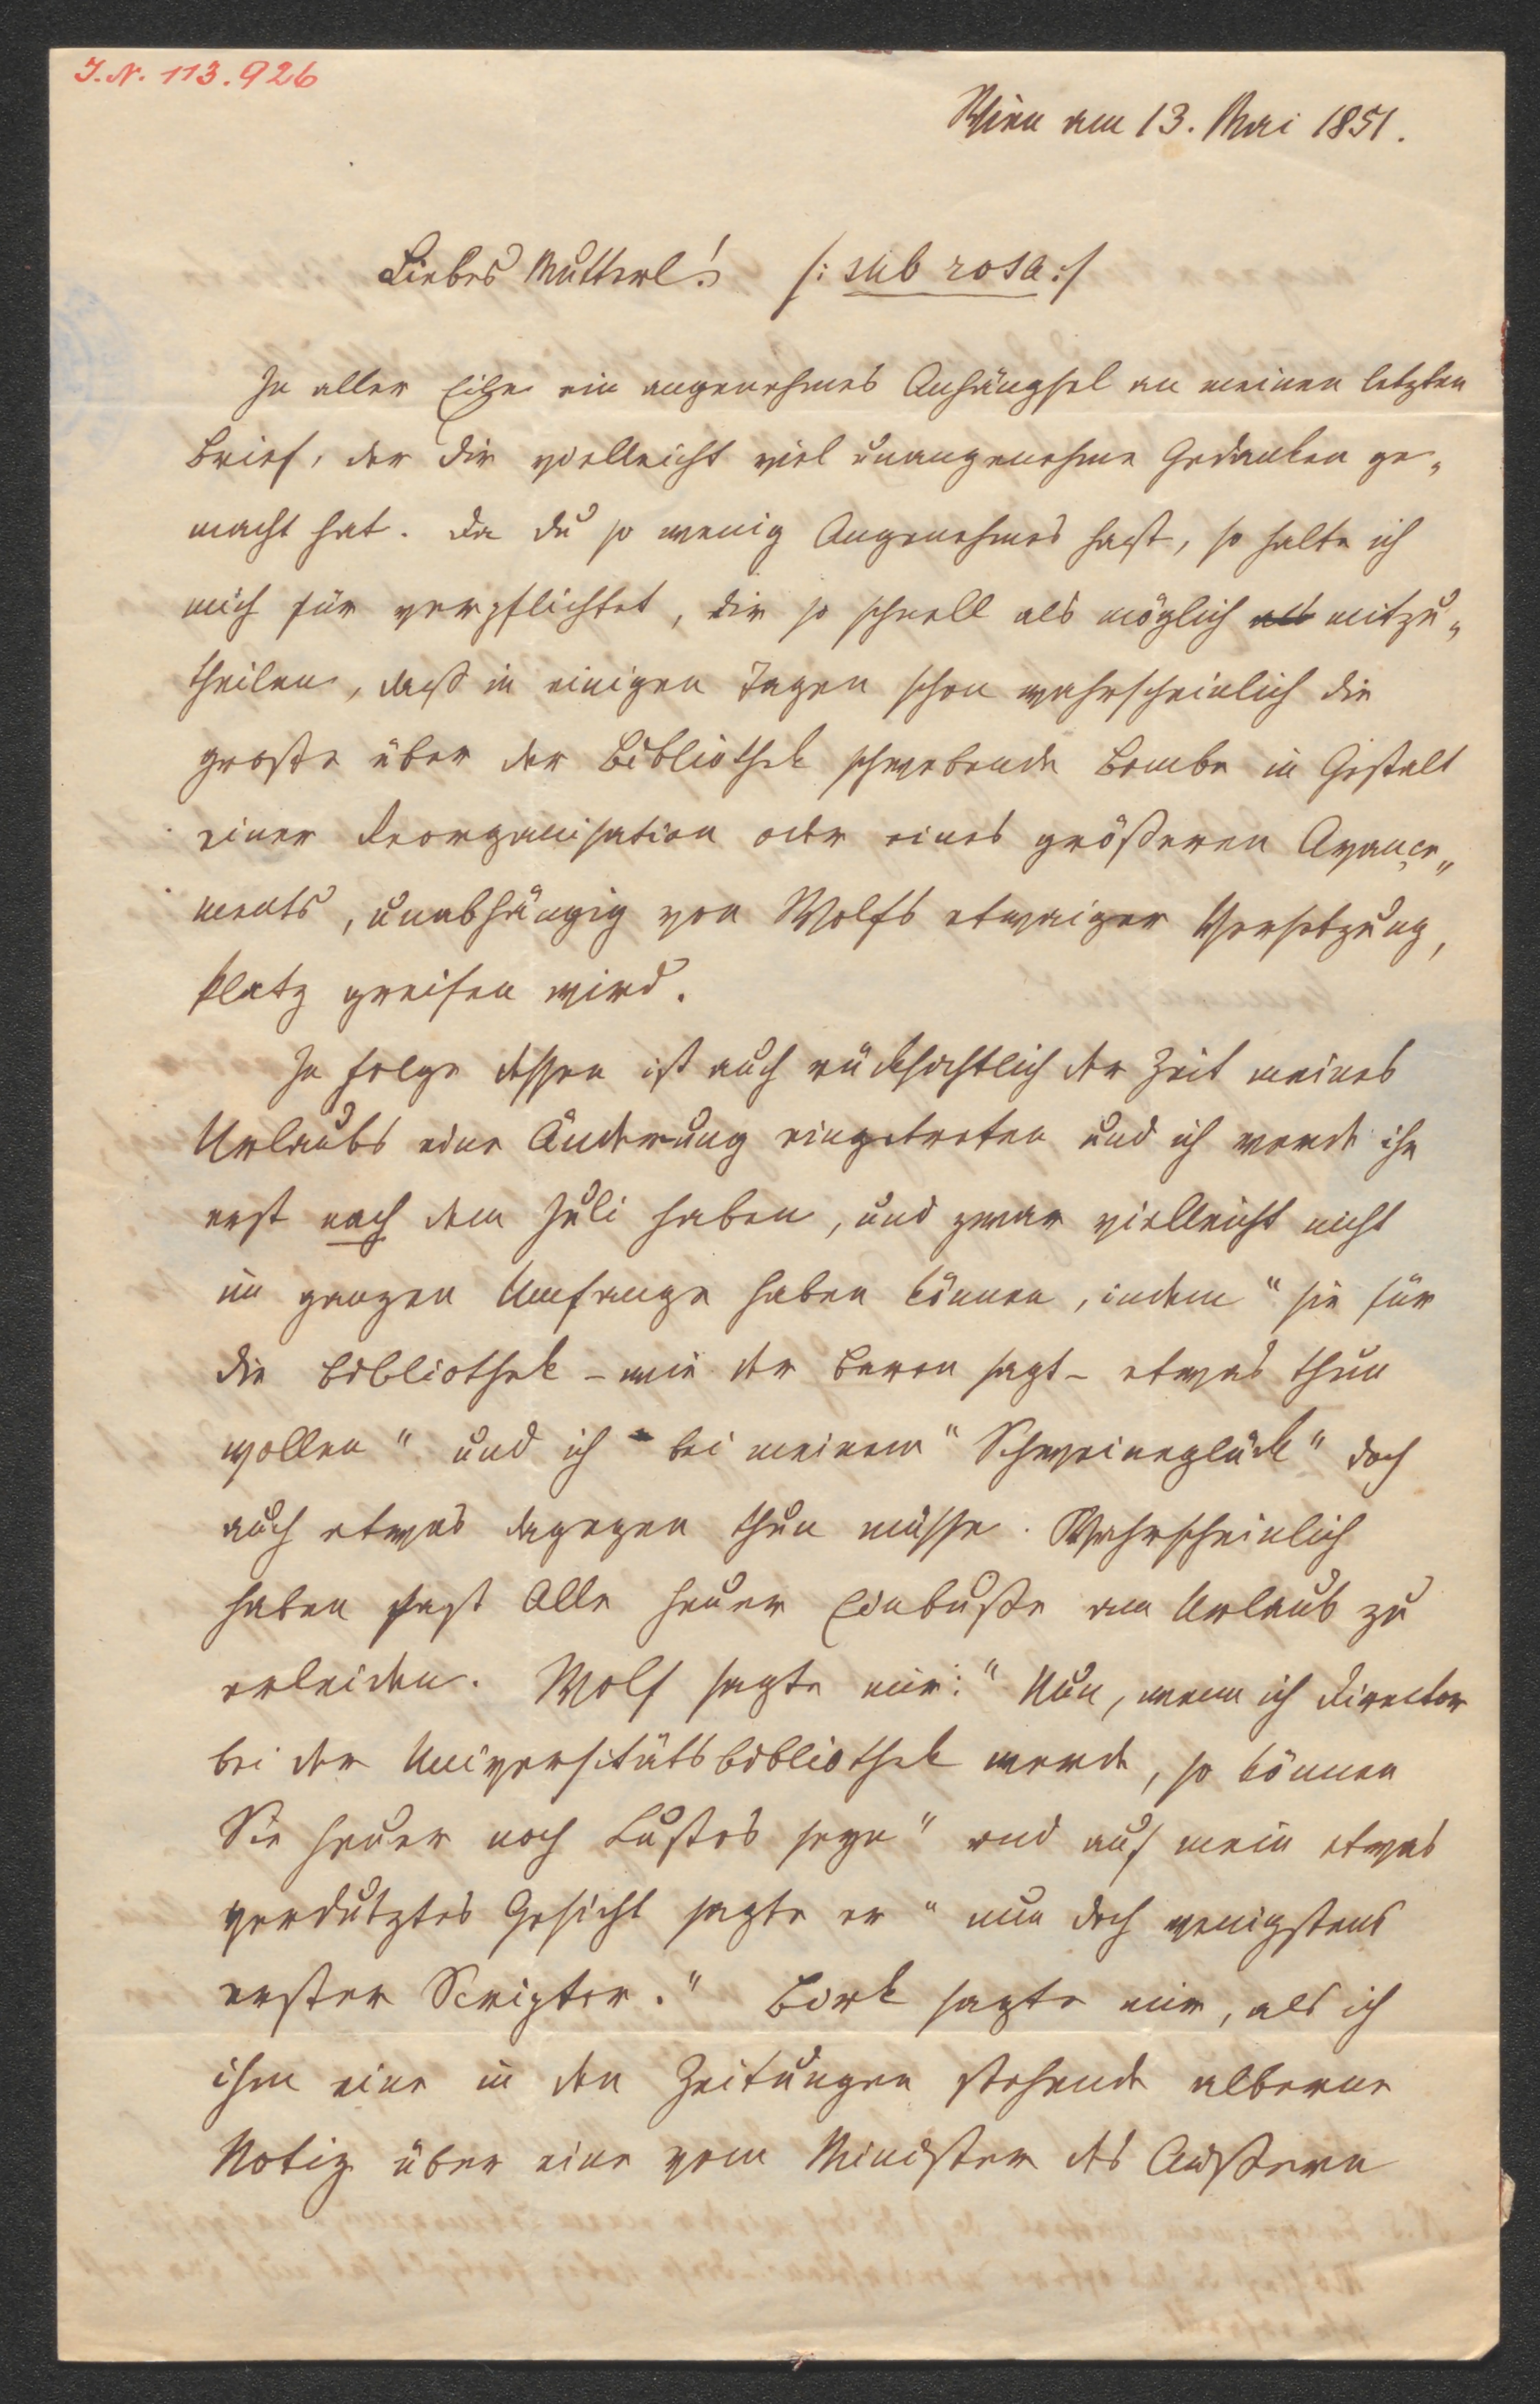 I. N. 113.926
Wien am 13. Mai 1851.
Liebes Mutterl! /: sub rosa :/
In aller Eile ein angenehmes Anhängsel an meinen letzten
Brief, der Dir vielleicht viel unangenehme Gedanken ge„
macht hat. Da Du so wenig Angenehmes hast, so halte ich
mich für verpflichtet, Dir so schnell als möglich als mitzu„
theilen, daß in einigen Tagen schon wahrscheinlich die
große über der Bibliothek schwebende Bombe in Gestalt
einer Reorganisation oder eines größeren Avance„
ments, unabhängig von Wolfs etwaiger Versetzung,
Platz greifen wird.
In Folge dessen ist auch rücksichtlich der Zeit meines
Urlaubs eine Änderung eingetreten und ich werde ihn
erst nach dem Juli haben, und zwar vielleicht nicht
im ganzen Umfange haben können, indem "sie für
die Bibliothek – wie der Baron sagt – etwas thun
wollen" und ich bei meinem "Schweineglück" doch
auch etwas dagegen thun müsse. Wahrscheinlich
haben fast Alle heuer Einbuße am Urlaub zu
erleiden. Wolf sagte mir: "Nun, wenn ich Director
bei der Universitätsbibliothek werde, so können
Sie heuer noch Custos seyn" und auf mein etwas
verdutztes Gesicht sagte er "nun doch wenigstens
erster Scriptor." Birk sagte mir, als ich
ihm eine in den Zeitungen stehende alberne
Notiz über eine vom Minister des Äußern